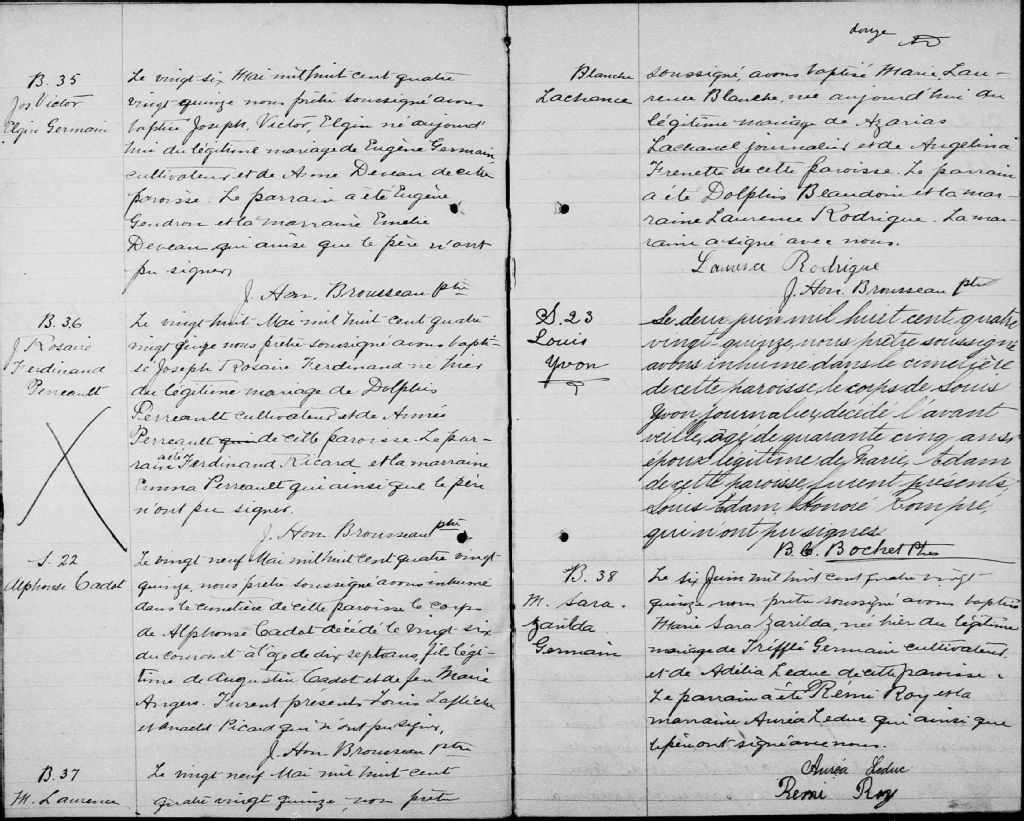 B. 35
Jos. Victor
Elgin Germain
Le vingt six Mai mil huit cent quatre
vingt quinze nous prêtre soussigné avons
baptisé Joseph, Victor, Elgin né aujourd'
hui du légitime mariage de Eugène Germain
cultivateur et de Anne Deveau de cette
paroisse. Le parrain a été Eugène
Gendron et la marraine Emelie
Deveau qui ainsi que le père n'ont
pu signer,
J. Hon. Brousseau ptre
B. 36
J. Rosaire
Ferdinand
Perreault
Le vingt huit Mai mil huit cent quatre
vingt quinze nous prêtre soussigné avons bapti-
sé Joseph Rosaire Ferdinand né hier
du légitime mariage de Dolphis
Perreault cultivateur et de Aimée
Perreault qui de cette paroisse. Le par-
rain a été Ferdinand Ricard et la marraine
Emma Perreault qui ainsi que le père
n'ont pu signer.
J. Hon. Brousseau ptre
S. 22
Alphonse Cadot
Le vingt neuf Mai mil huit cent quatre vingt
quinze, nous prêtre soussigné avons inhumé
dans le cemetière de cette paroisse le corps
de Alphonse Cadot décédé le vingt six
du courant à l'âge de dix sept ans, fils légi-
time de Augustin Cadot et de feu Marie
Angers. Furent présents Louis Laflèche
et Anaclet Picard qui n'ont pu signer,
J. Hon. Brousseau ptre
B. 37
M. Laurence
Le vingt neuf Mai mil huit cent
quatre vingt quinze, nous prêtre
douze
Blanche
Lachance
soussigné, avons baptisé Marie, Lau-
rence Blanche, née aujourd'hui du
légitime mariage de Azarias
Lachance journalier et de Angelina
Frenette de cette paroisse. Le parrain
a été Dolphis Beaudoin et la mar-
raine Laurence Rodrigue. La mar-
raine a signé avec nous.
Laurence Rodrigue
J. Hon. Brousseau ptre
S. 23
Louis
Yvon
Le deux juin mil huit cent quatre
vingt-quinze, nous prêtre soussigné
avons inhumé dans le cimetière
de cette paroisse, le corps de Louis
Yvon journalier, décédé l'avant
veille, âgé de quarante cinq ans,
époux légitime de Marie, Adam
de cette paroisse, furent présents,
Louis Adam, Honoré Rompré,
qui n'ont pu signer
B. C. Bochet Ptre
B. 38
M. Sara.
Zarilda
Germain
Le six Juin mil huit cent quatre vingt
quinze nous prêtre soussigné avons baptisé
Marie Sara Zarilda, née hier du légitime
mariage de Trefflé Germain cultivateur
et de Adélia Leduc de cette paroisse.
Le parrain a été Rémi Roy et la
marraine Auréa Leduc qui ainsi que
le père ont signé avec nous.
Auréa Leduc
Remi Roy